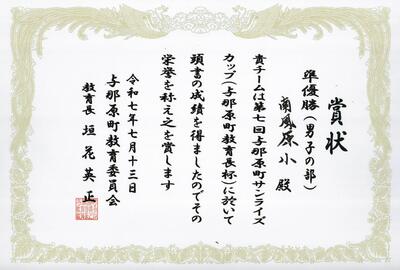 賞状
準優勝（男子の部）
南風原小 殿
貴チームは第七回与那原町サンライズ
カップ（与那原町教育長杯）に於いて
頭書の成績を得ましたのでその
栄誉を称え之を賞します
令和七年七月十三日
与那原町教育委員会
教育長 垣花英正